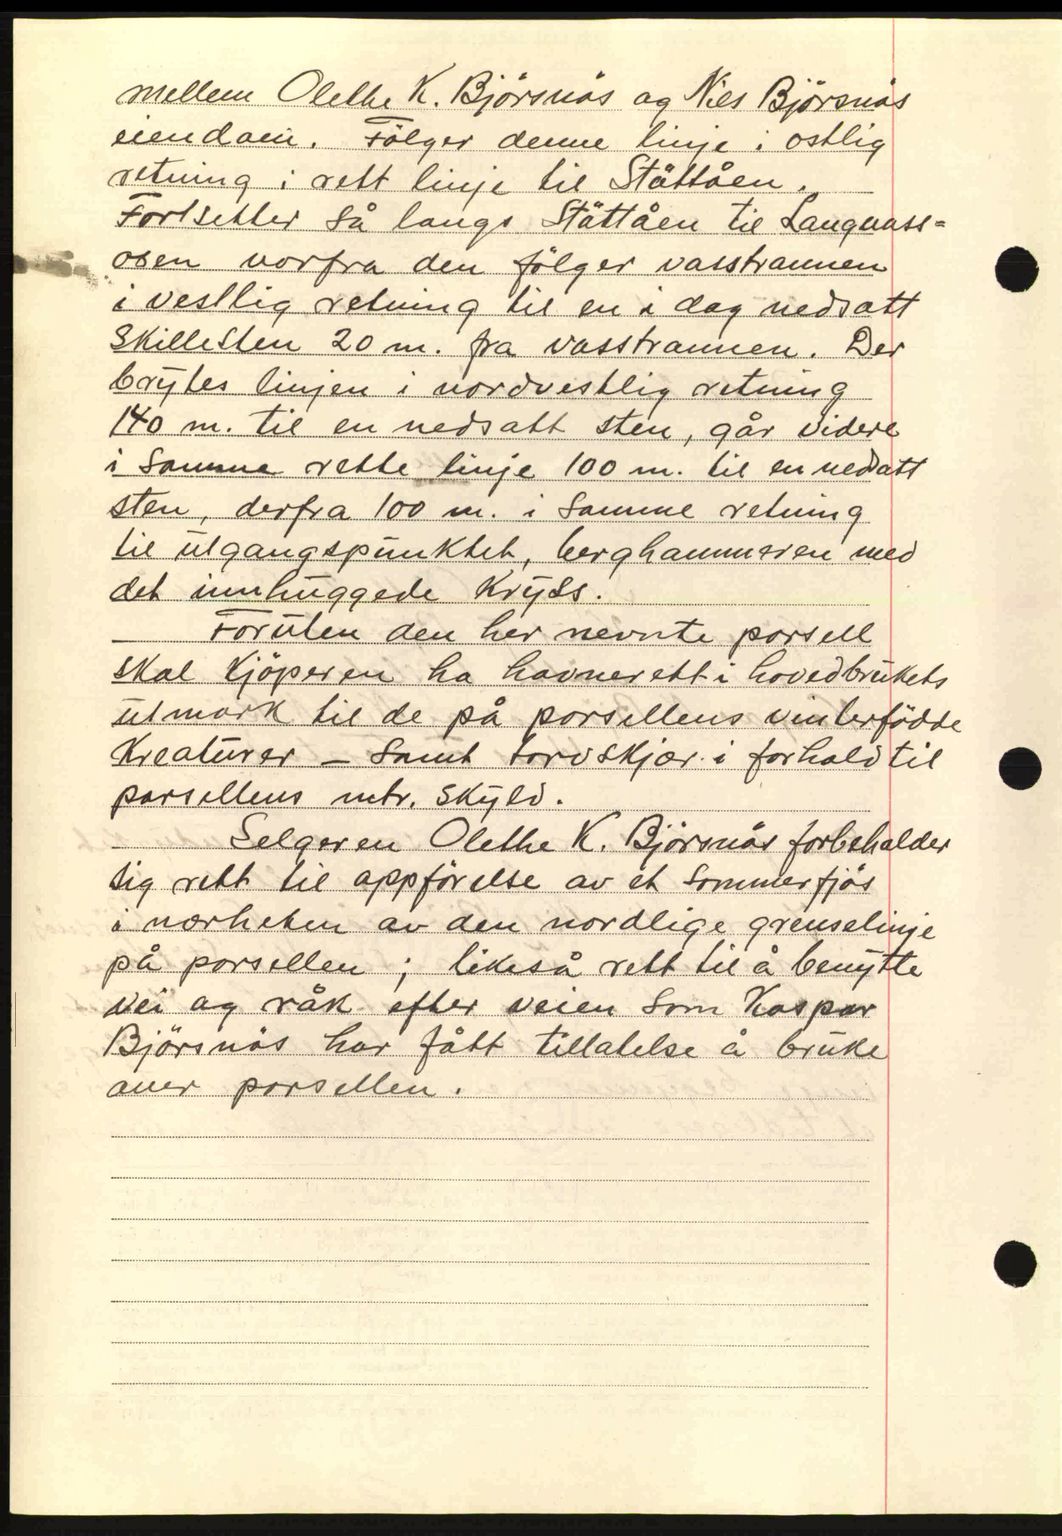 mellem Olethe K. Björsnäs og Nils Björsnäs
eiendom. Fölger denne linje i östlig
retning i rett linje til Stättåen.
Fortsetter så langs Stättåen til Langvass-
osen vorfra den fölger vasstrannen
i vestlig retning til en i dag nedsatt
skillesten 20 m. fra vasstrannen. Der
brytes linjen i nordvestlig retning
140 m. til en nedsatt sten, går videre
i samme rette linje 100 m. til en nedsatt
sten, derfra 100 m. i samme retning
til utgangspunktet, berghammeren med
det innhuggede kryss.
Foruten den her nevnte parsell
skal kjöperen ha havnerett i hovedbrukets
utmark til de på parsellens vinterfödde
kreaturer – samt torvskjær i forhold til
parsellens mtr. skyld.
Selgeren Olethe K. Björsnäs forbeholder
sig rett til oppförelse av et sommerfjös
i nærheten av den nordlige grenselinje
på parsellen; likeså rett til å benytte
vei og råk efter veien som Kaspar
Björsnäs har fått tillatelse å bruke
over parsellen.